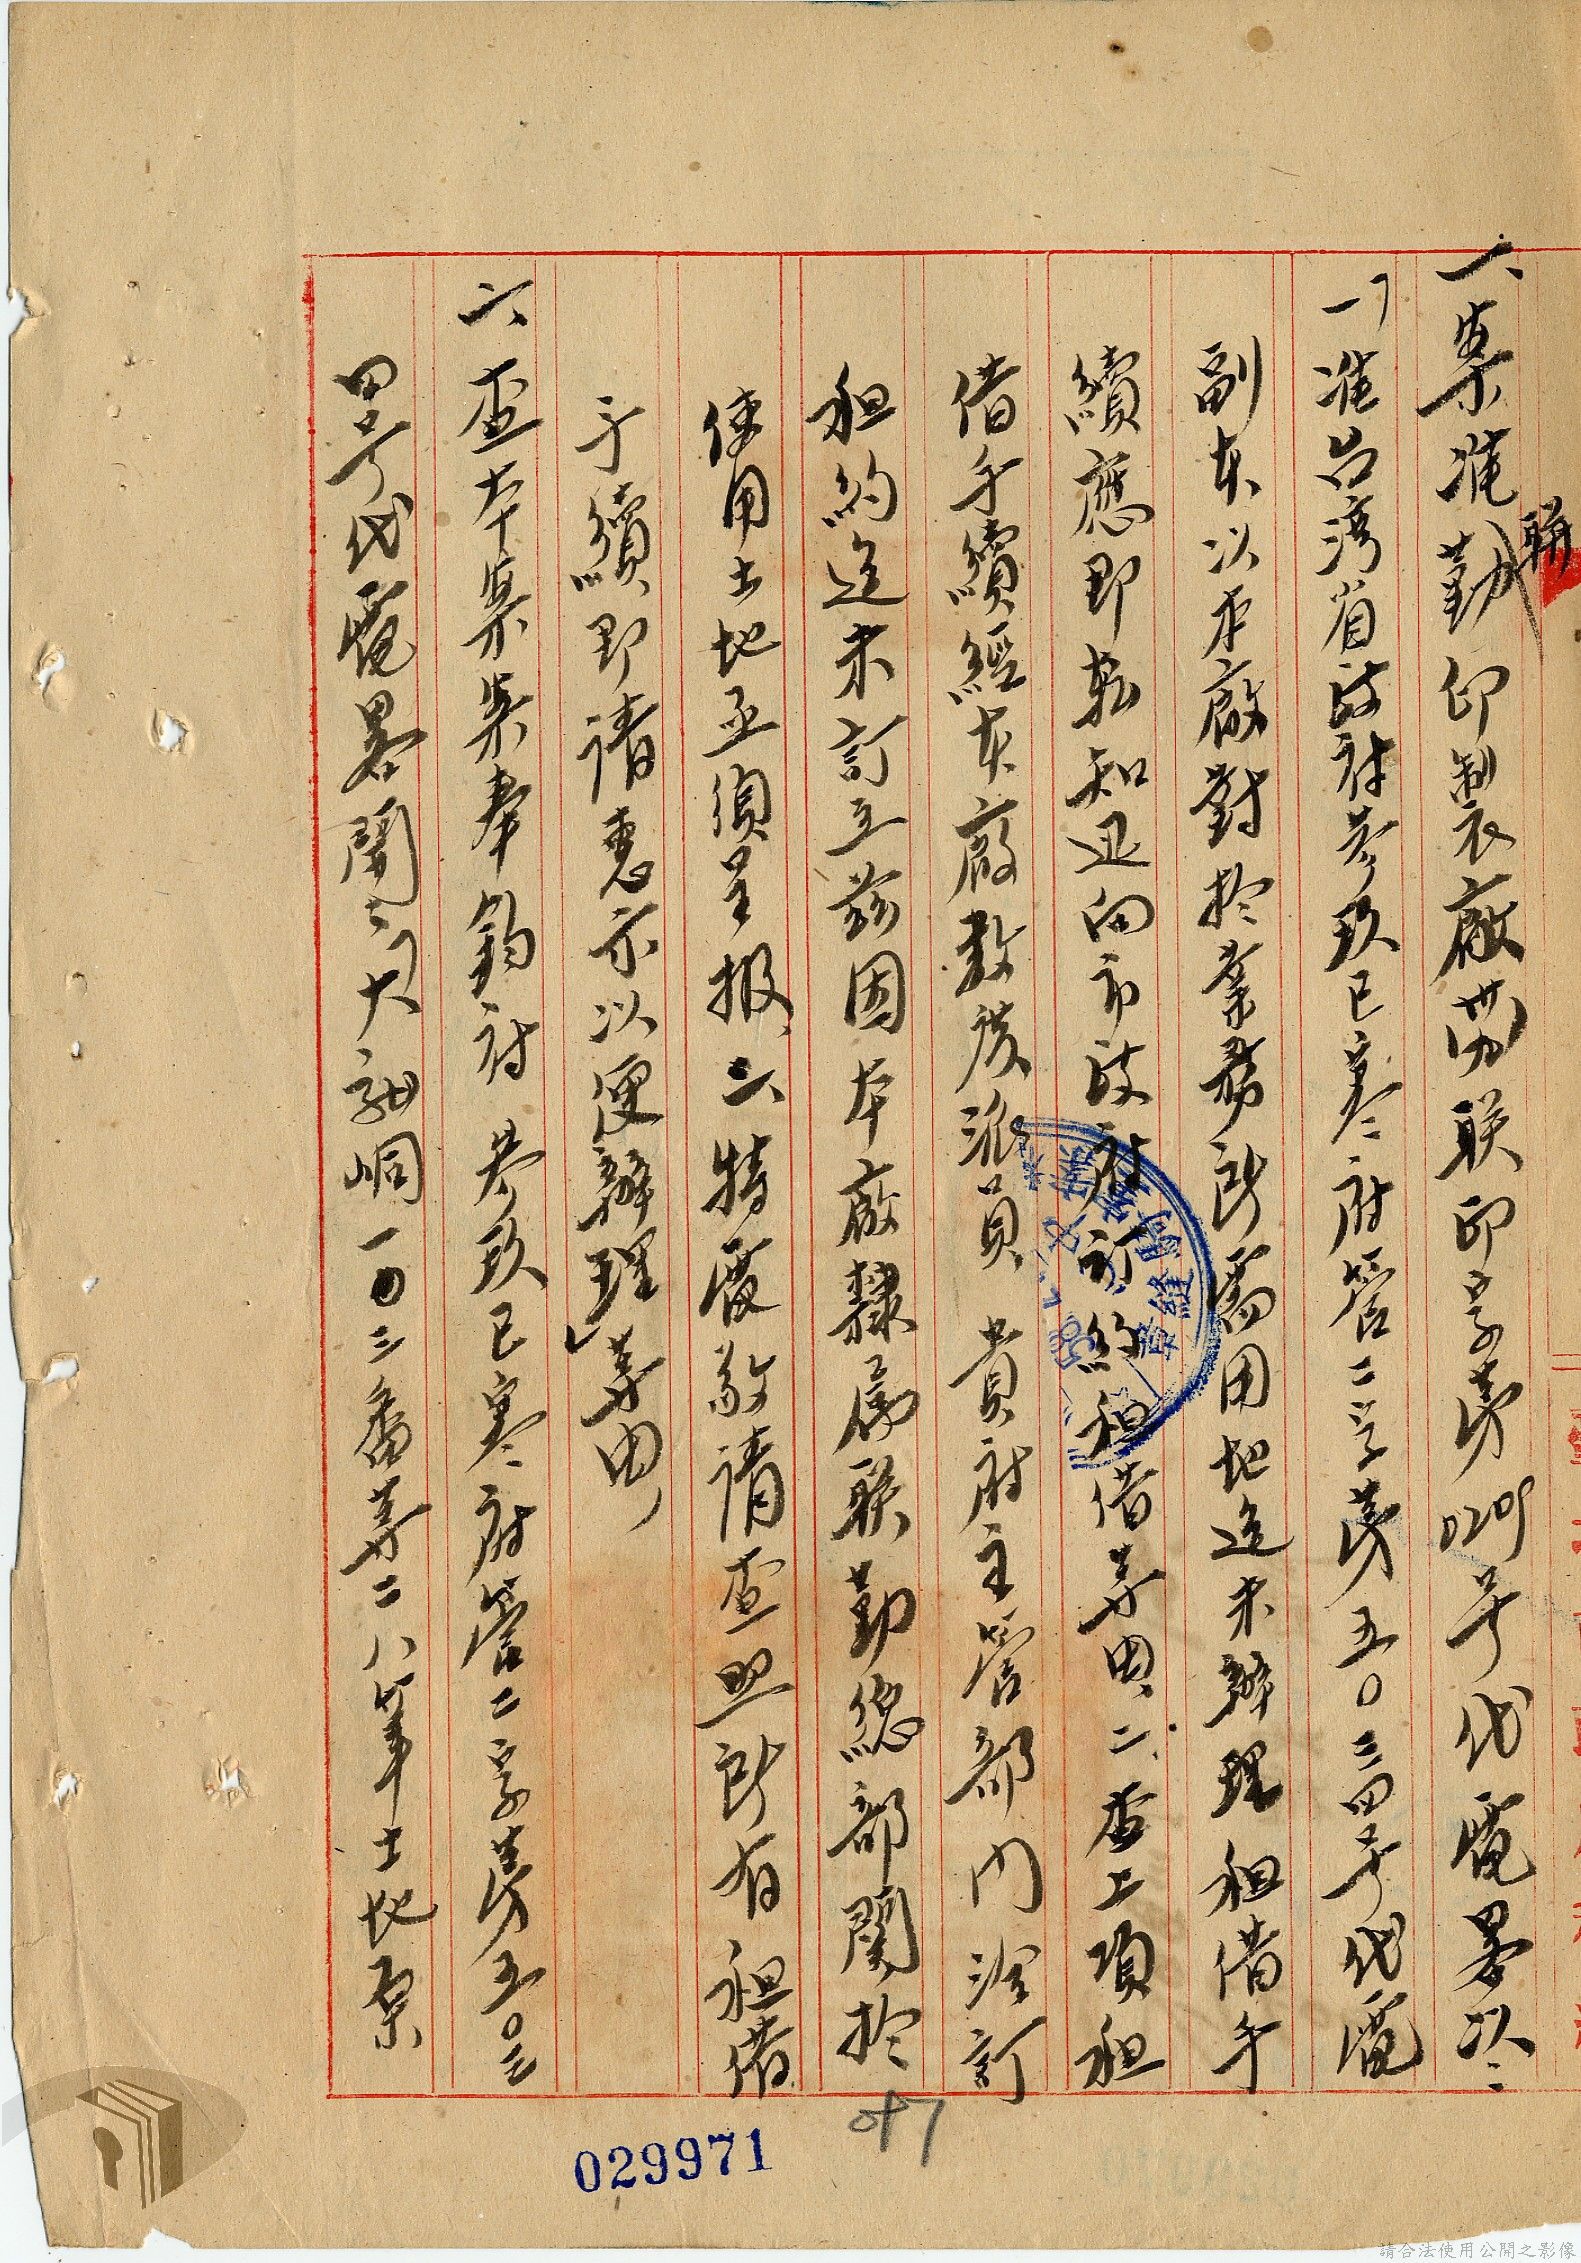 一、案准聯勤印製衣廠勞聯印字第0209号代電畧以：
「一、准台湾省政府叁玖已寒府管二字第五〇三四号代電
副本以本廠對於業務所需用地迄未辦理租借手
續應即転知逕向市政府訂約租借等由二、查上項租
借手續經本廠数度派員 貴府主管部门洽訂
租約迄未訂立茲因本廠隸属联勤總部關於
使用土地亟須呈报、三、特電敬請查照所有租借
手續即請惠示以便辦理」等由
二、查本案案奉鈞府 叁玖已寒府管二字第五〇三
四号代電畧開：「大 峒一〇三番等二八筆土地原
聯
029971
請合法使用公開之影像